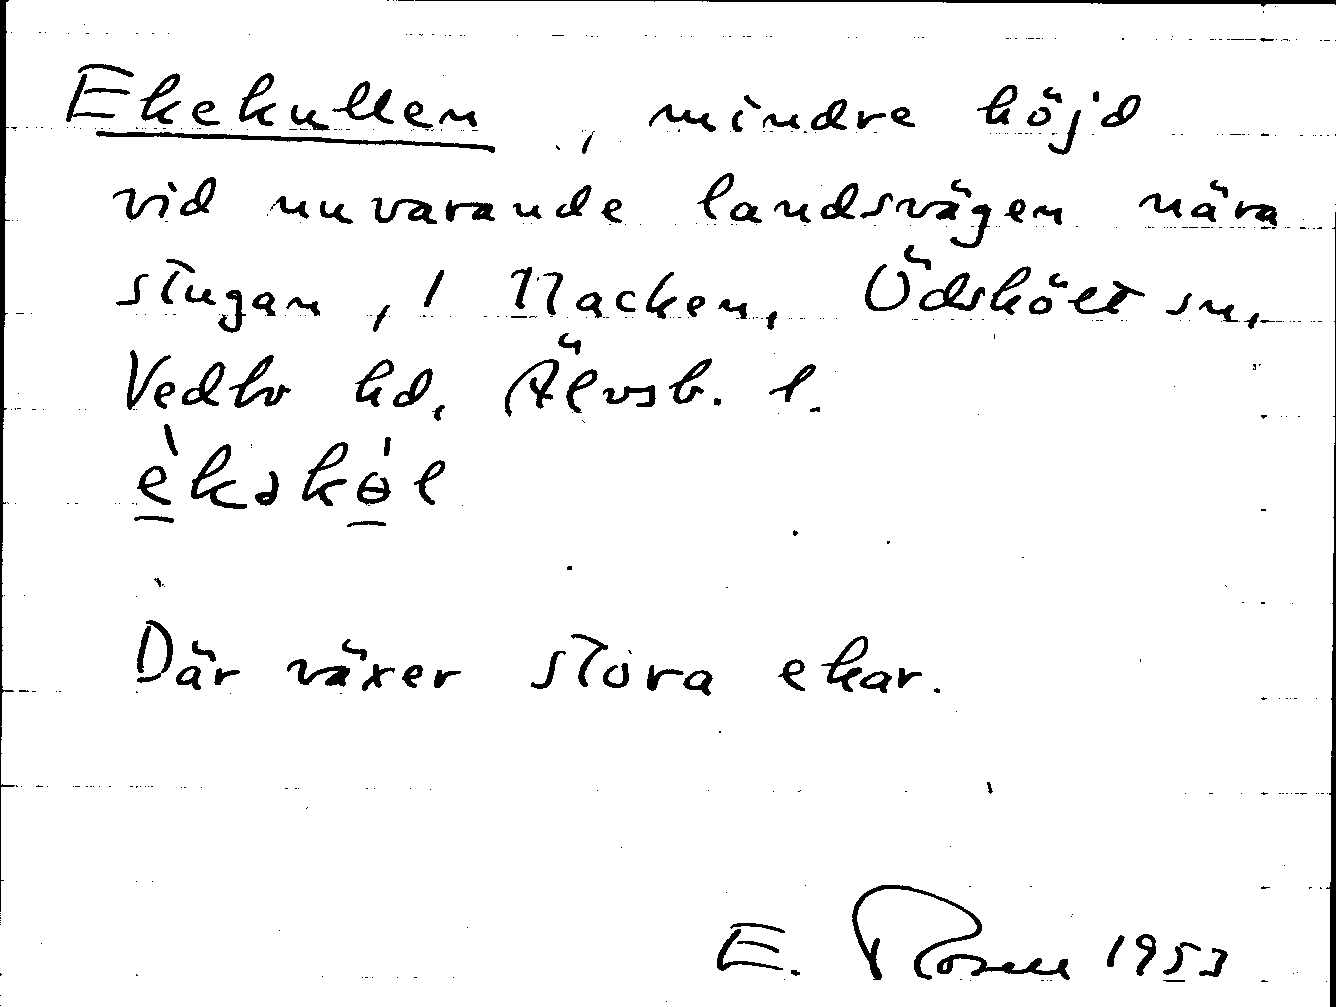 Ekekullen, mindre höjd
vid nuvarande landsvägen nära
stugan, 1 Nacken, Ödskölt sn,
Vedbo hd, Älvsb. l.
è̱kəkɵ̱́l
Där växer stora ekar.
E. Rosell 1953